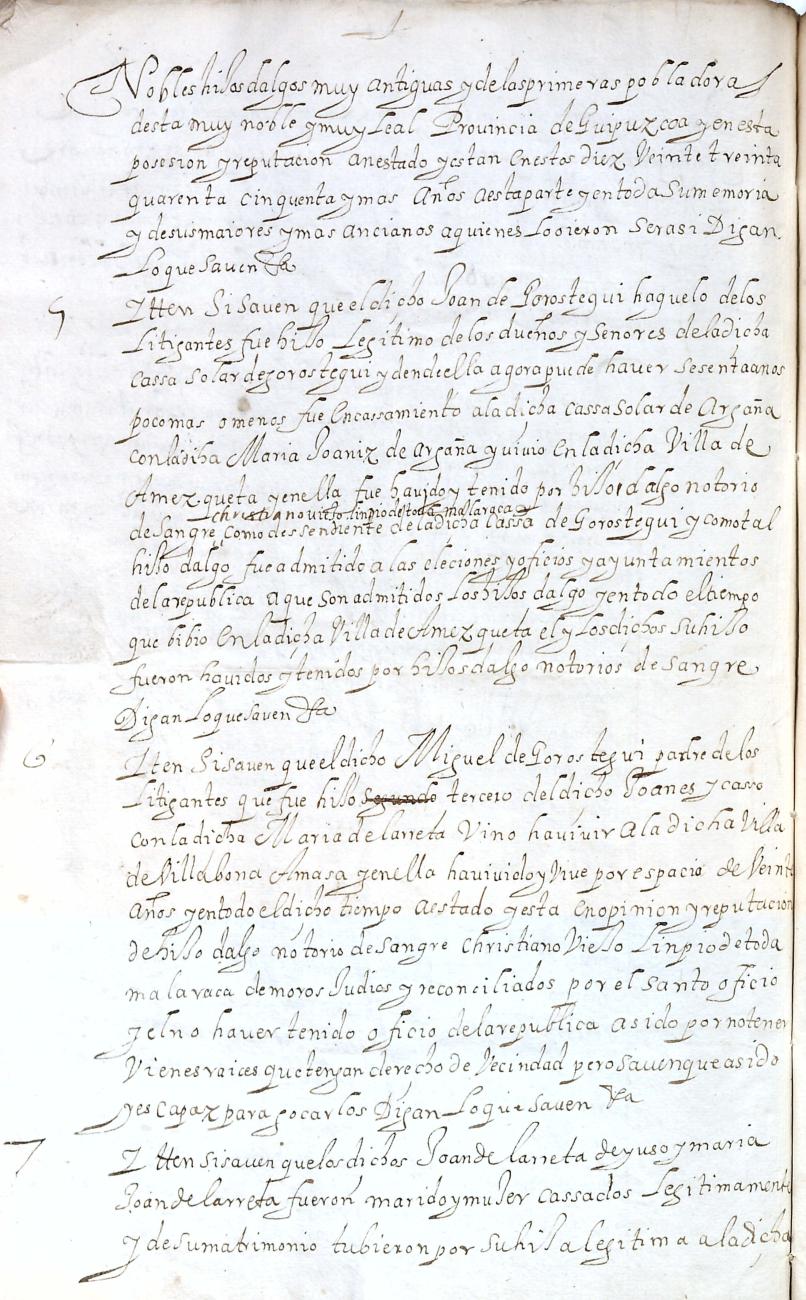 Nobles hijos dalgos muy antiguas y de las primeras pobladoras
desta muy noble y muy Leal Provincia de Guipuzcoa y en esta
posesion y reputacion an estado y estan en estos diez Veinte treinta
quarenta cinquenta y mas Años a esta parte y en toda su memoria
y de sus maiores y mas Ancianos a quienes Lo oieron ser asi Digan
Lo que saven &a
5 Itten Si saven que el dicho Joan de Gorostegui haguelo de los
Litigantes fue hijo Legitimo de los dueños y Señores de la dicha
cassa solar de gorostegui y dende ella agora puede haver sesenta anos
poco mas o menos fue En cassamiento a la dicha cassa Solar de Argaña
con la diha Maria Joaniz de Argaña y vivio en la dicha Villa de
Amezqueta y en ella fue havido y tenido por hijo dalgo notorio
christiano viejo linpio de toda mala raca
de Sangre como dessendiente de la dicha Cassa de Gorostegui y como tal
hijo dalgo fue admitido a las eleciones y oficios y ayuntamientos
de la republica a que son admitidos Los hijos dalgo y en todo el tiempo
que bibio En la dicha Villa de Amezqueta el y Los dichos su hijo
fueron havidos y tenidos por hijos dalgo notorios de Sangre
Digan Lo que saven &a
6 Iten Si saven que el dicho Miguel de Gorostegui padre de los
Litigantes que fue hijo Segundo tercero del dicho Joanes y casso
con la dicha Maria de larreta Vino ha vivir a la dicha Villa
de Villabona Amasa y en ella ha vivido y Vive por espacio de Veinte
Años y en todo el dicho tiempo a estado y esta en opinion y reputacion
de hijo dalgo notorio de Sangre christiano Viejo Linpio de toda
mala raca de moros Judios y reconciliados por el santo oficio
y el no haver tenido oficio de la republica a sido por no tener
Vienes raices que tengan derecho de Vecindad pero saven que a sido
y es capaz para gocarlos Digan Lo que saven &a
7 Itten si saven que los dichos Joan de larreta de yuso y maria
Joan de larreta fueron marido y mujer cassados Legitimamente
y de su matrimonio tubieron por su hija legitima a la dicha